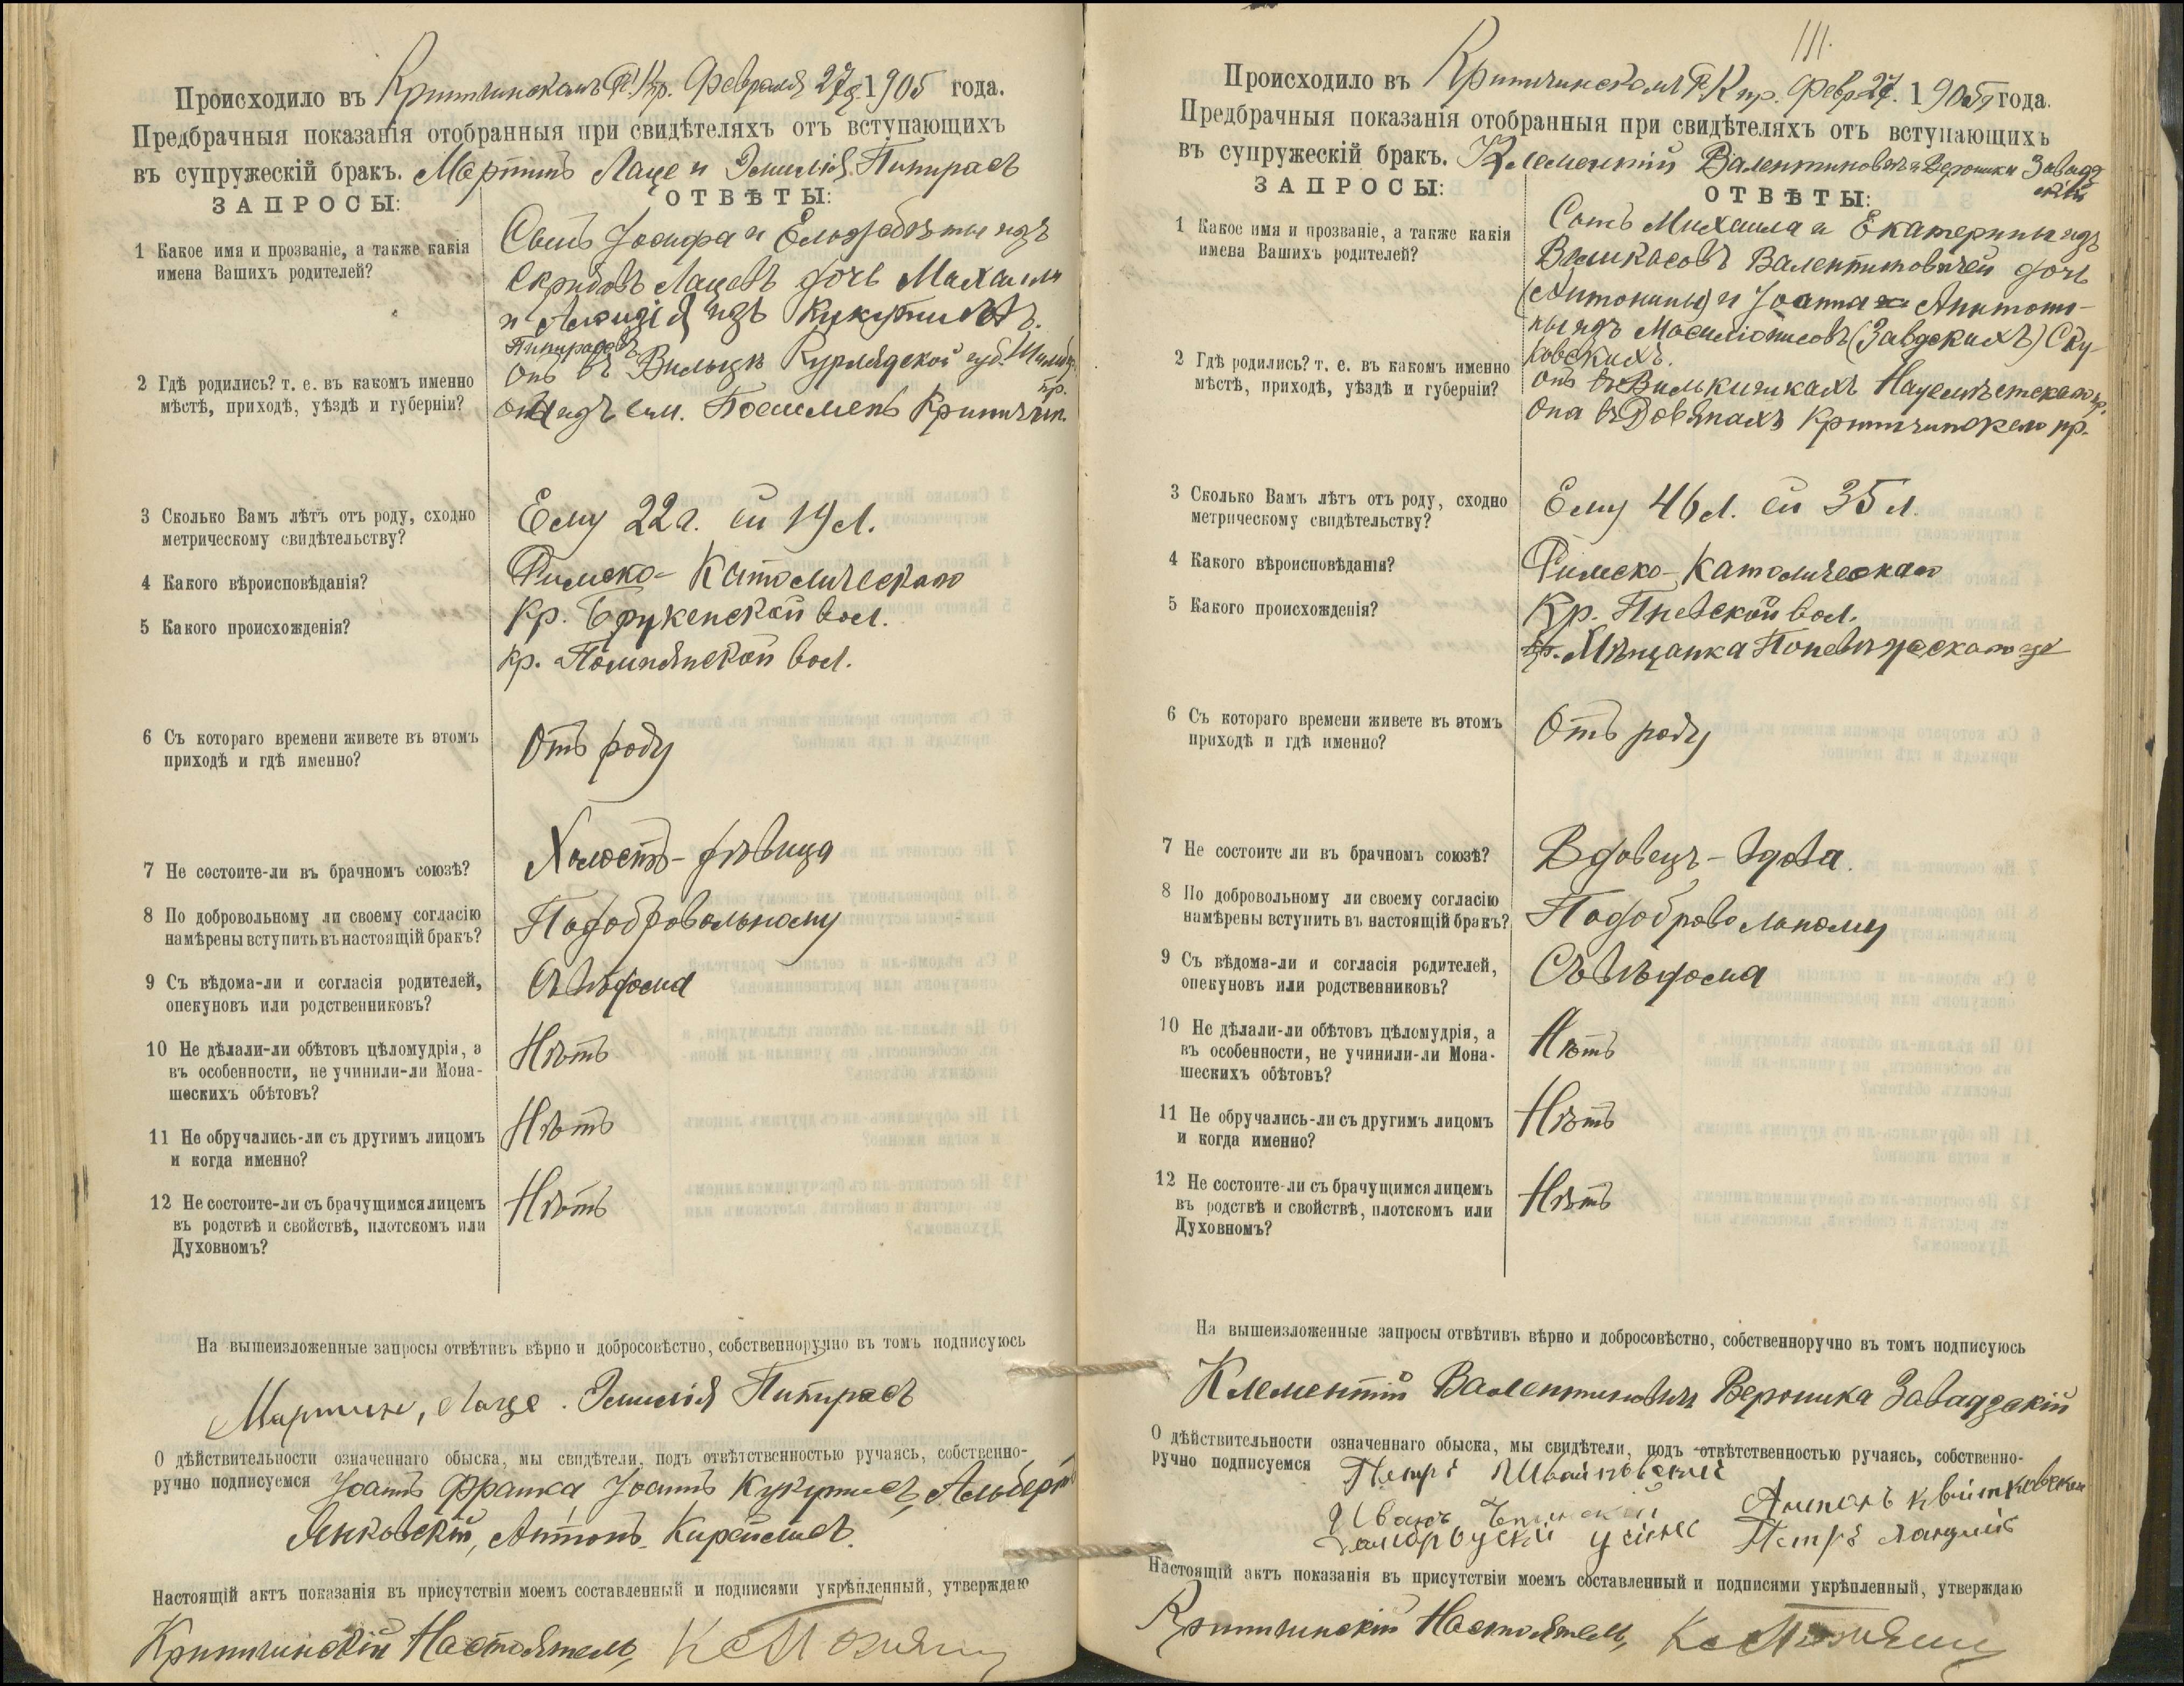 Происходило въ Криптинскомъ Р. К. пр. Февраля 27 д. 1905 года.
Предбрачныя показанія отобранныя при свидѣтеляхъ отъ вступающихъ
въ супружескій бракъ. Мартинъ Лаце и Эмилія Пипирасъ
ЗАПРОСЫ:
ОТВѢТЫ:
1 Какое имя и прозваніе, а также какія
имена Вашихъ родителей?
Сынъ Іосифа и Елизабѣты изъ
Лацевъ дочь Михаила
и изъ
2 Гдѣ родились? т. е. въ какомъ именно
мѣстѣ, приходѣ, уѣздѣ и губерніи?
Онъ въ Курляндской губ.
пр.
Она изъ им.
3 Сколько Вамъ лѣтъ отъ роду, сходно
метрическому свидѣтельству?
Ему 22 г. ей 19 л.
4 Какого вѣроисповѣданія?
Римско-Католическаго
5 Какого происхожденія?
Кр. Брукенской вол.
Кр. вол.
6 Съ котораго времени живете въ этомъ
приходѣ и гдѣ именно?
Отъ роду
7 Не состоите-ли въ брачномъ союзѣ?
Холостъ-дѣвица
8 По добровольному ли своему согласію
намѣрены вступить въ настоящій бракъ?
Подобровольному
9 Съ вѣдома-ли и согласія родителей,
опекуновъ или родственниковъ?
Съ вѣдома
10 Не дѣлали-ли обѣтовъ цѣломудрія, а
въ особенности, не учинили-ли Мона-
шескихъ обѣтовъ?
Нѣтъ
11 Не обручались-ли съ другимъ лицомъ
и когда именно?
Нѣтъ
12 Не состоите-ли съ брачущимся лицемъ
въ родствѣ и свойствѣ, плотскомъ или
Духовномъ?
Нѣтъ
На вышеизложенные запросы отвѣтивъ вѣрно и добросовѣстно, собственноручно въ томъ подписуюсь
Мартин, Лаце. Эмилія Пипирасъ
О дѣйствительности означеннаго обыска, мы свидѣтели, подъ отвѣтственностью ручаясь, собственно-
ручно подписуемся Іоаннъ Франка Іоаннъ Альбертъ
Янковскій, Антонъ
Настоящій актъ показанія въ присутствіи моемъ составленный и подписями укрѣпленный, утверждаю
Настоятель,
111.
Происходило въ Криптинскомъ Р. К. пр. Февр 27. 1905 года.
Предбрачныя показанія отобранныя при свидѣтеляхъ отъ вступающихъ
въ супружескій бракъ. Клементій Валентиновичъ и Вероники Завадз
кій
ЗАПРОСЫ:
ОТВѢТЫ:
1 Какое имя и прозваніе, а также какія
имена Вашихъ родителей?
Сынъ Михаила и Екатерины изъ
Валентиновичей дочь
(Антонины) и Іоанна Антони-
ны изъ (Завдскихъ) Ску-
ковскихъ.
2 Гдѣ родились? т. е. въ какомъ именно
мѣстѣ, приходѣ, уѣздѣ и губерніи?
Онъ пр.
Она въ пр.
3 Сколько Вамъ лѣтъ отъ роду, сходно
метрическому свидѣтельству?
Ему 46 л. ей 35 л.
4 Какого вѣроисповѣданія?
Римско-Католическаго
5 Какого происхожденія?
Кр. вол.
Мѣщанка
6 Съ котораго времени живете въ этомъ
приходѣ и гдѣ именно?
Отъ роду
7 Не состоите ли въ брачномъ союзѣ?
Вдовецъ-вдова.
8 По добровольному ли своему согласію
намѣрены вступить въ настоящій бракъ?
Подобровольному
9 Съ вѣдома-ли и согласія родителей,
опекуновъ или родственниковъ?
Съ вѣдома
10 Не дѣлали-ли обѣтовъ цѣломудрія, а
въ особенности, не учинили-ли Мона-
шескихъ обѣтовъ?
Нѣтъ
11 Не обручались-ли съ другимъ лицомъ
и когда именно?
Нѣтъ
12 Не состоите-ли съ брачущимся лицемъ
въ родствѣ и свойствѣ, плотскомъ или
Духовномъ?
Нѣтъ
На вышеизложенные запросы отвѣтивъ вѣрно и добросовѣстно, собственноручно въ томъ подписуюсь
Клементій Валентиновичъ Вероника Завадзкій
О дѣйствительности означеннаго обыска, мы свидѣтели, подъ отвѣтственностью ручаясь, собственно-
ручно подписуемся Петръ
Иванъ Антонъ
Петръ
Настоящій актъ показанія въ присутствіи моемъ составленный и подписями укрѣпленный, утверждаю
Настоятель,